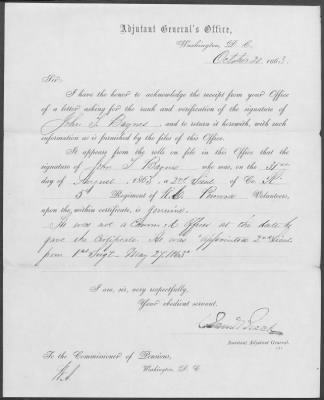 Adjutant General's Office,
Washington, D. C.
October 21, 1863.
Sir:
I have the honor to acknowledge the receipt from your Office
of a letter asking for the rank and verification of the signature of
John T. Baynes, and to return it herewith, with such
information as is furnished by the files of this Office.
It appears from the rolls on file in this Office that the
signature of John T Bayne who was, on the 31st
day of August 1863, a 2nd Lieut of Co. K.
5th Regiment of Volunteers,
upon the within certificate, is genuine.
He was not a Com'd Officer at the date he
gave the Certificate. He was "appointed 2nd Lieut
from 1st Sergt - May 27, 1863"
I am, sir, very respectfully,
Your obedient servant,
Assistant Adjutant General.
To the Commissioner of Pensions,
Washington, D. C.